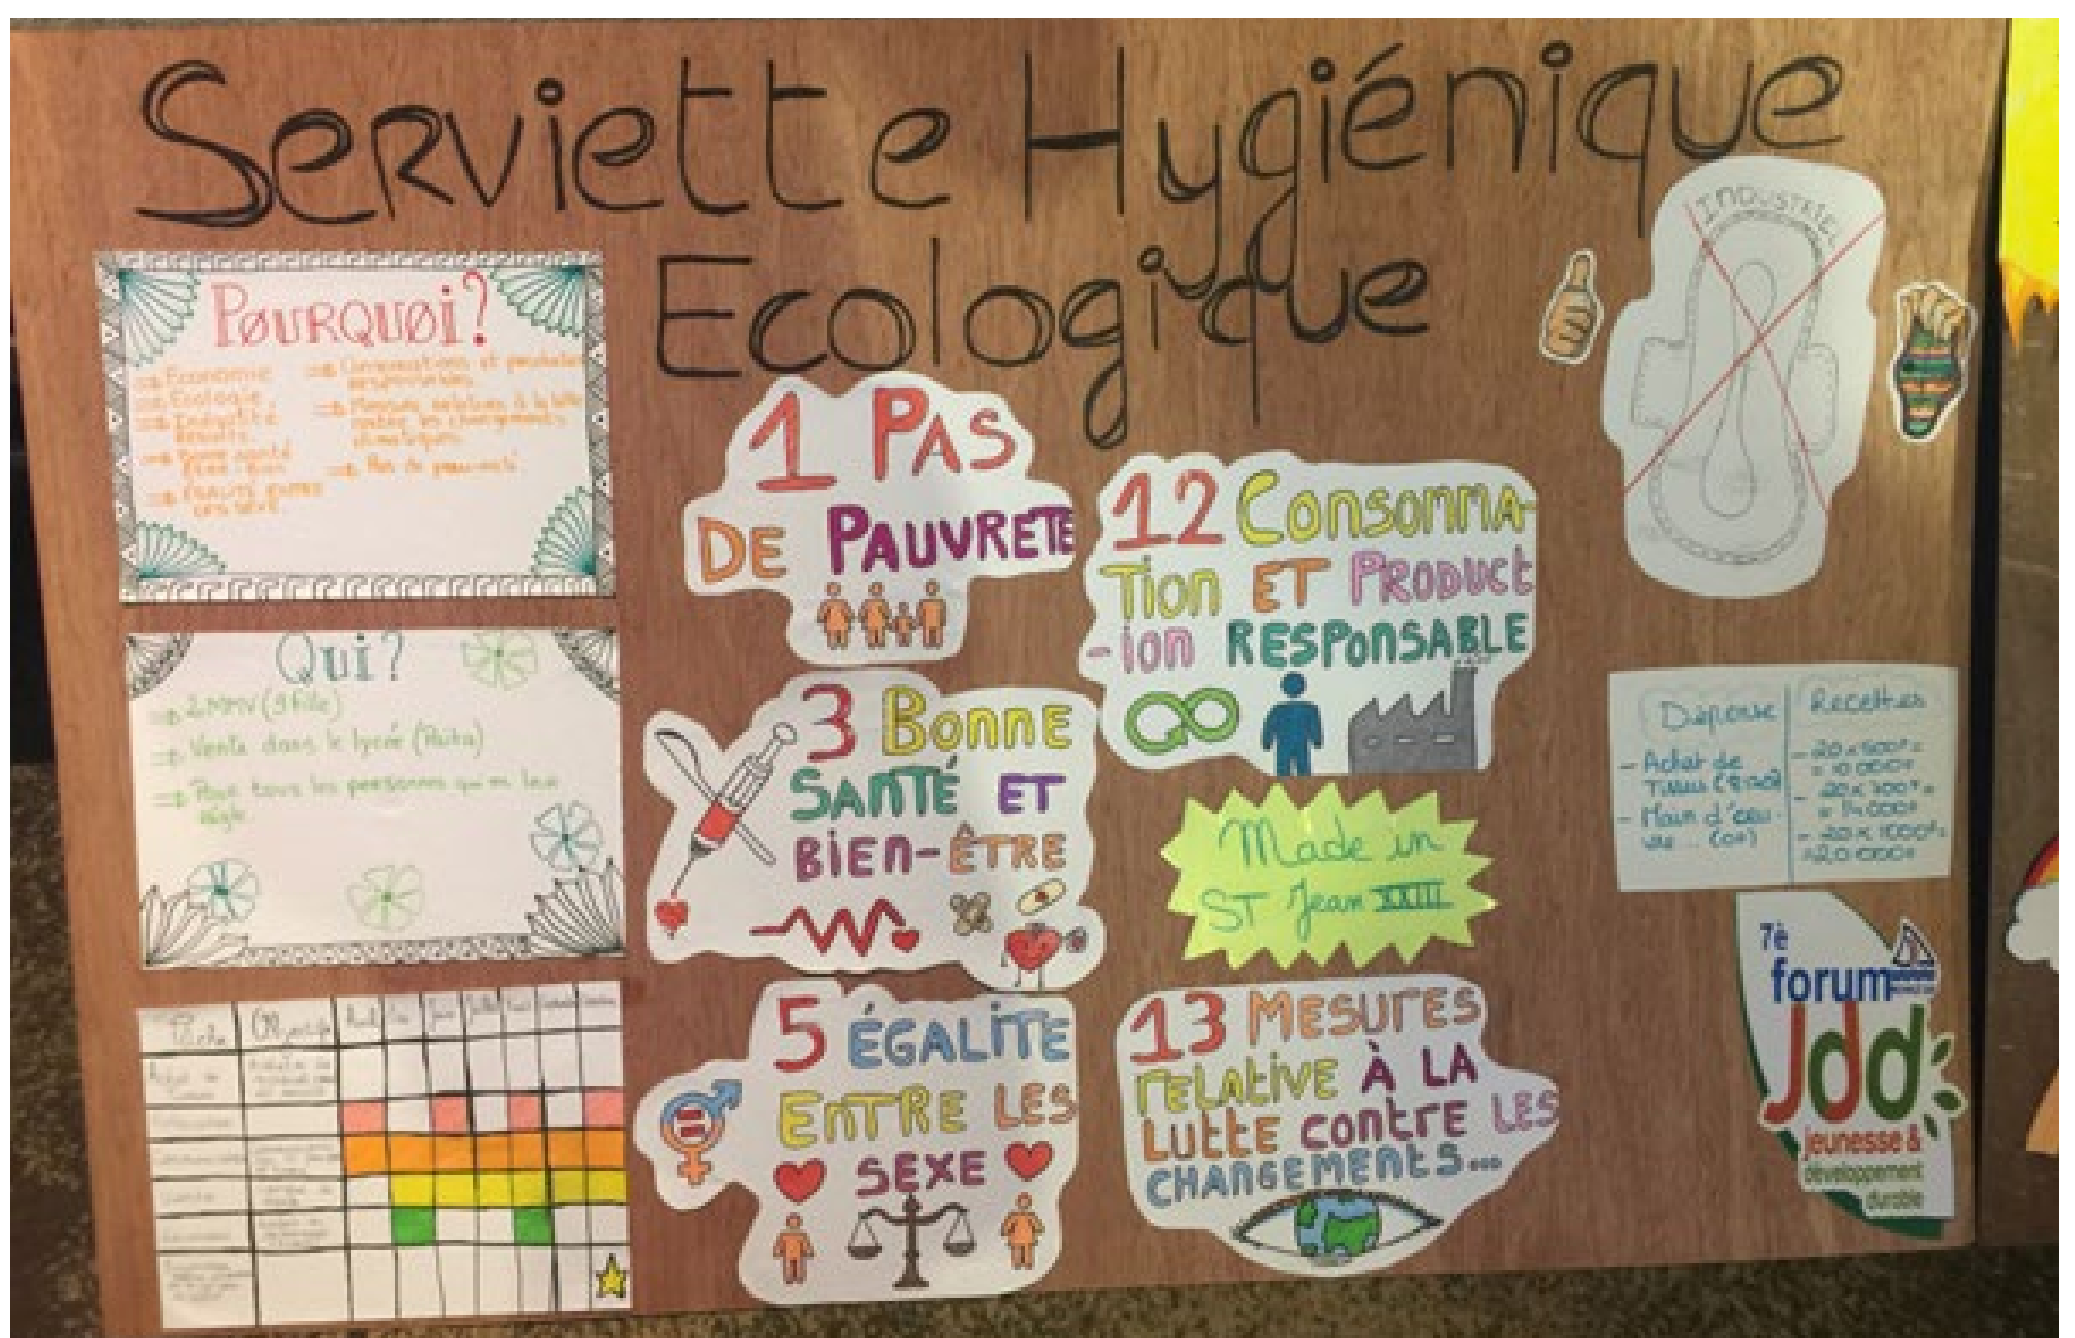 Serviette Hygiénique
Ecologique
INDUSTRIEL
POURQUOI?
⇒ Economie
⇒ Ecologie
⇒ Inégalité
⇒ Bonne santé
Être-bien
⇒ ÉGALITÉ ENTRE
LES SEXE
⇒ Consommations et
responsables
⇒ Mesures relatives à la lutte
contre les changements
climatiques
⇒ Pas de pauvreté
Qui?
⇒ 2MMV (9 fille)
⇒ Vente dans le lycée (Païta)
⇒ Pour tous les personnes qui on leur
règle
Tâche
Objectif
Avril
Juin
Juillet
Achat de
1 PAS
DE PAUVRETE
12 CONSOMMA-
TION ET PRODUCT
-ION RESPONSABLE
3 BONNE
SANTÉ ET
BIEN-ÊTRE
Made in
ST Jean XXIII
5 ÉGALITE
ENTRE LES
SEXE
13 MESURES
RELATIVE À LA
LUTTE CONTRE LES
CHANGEMENTS...
Dépense
- Achat de
Tissu
- Main d'œu-
Recettes
- 20x500F=
= 10 000F
- 20x700F=
= 14000F
- 20x1000F=
=20 000F
7è
forum
Jdd
jeunesse &
développement
durable